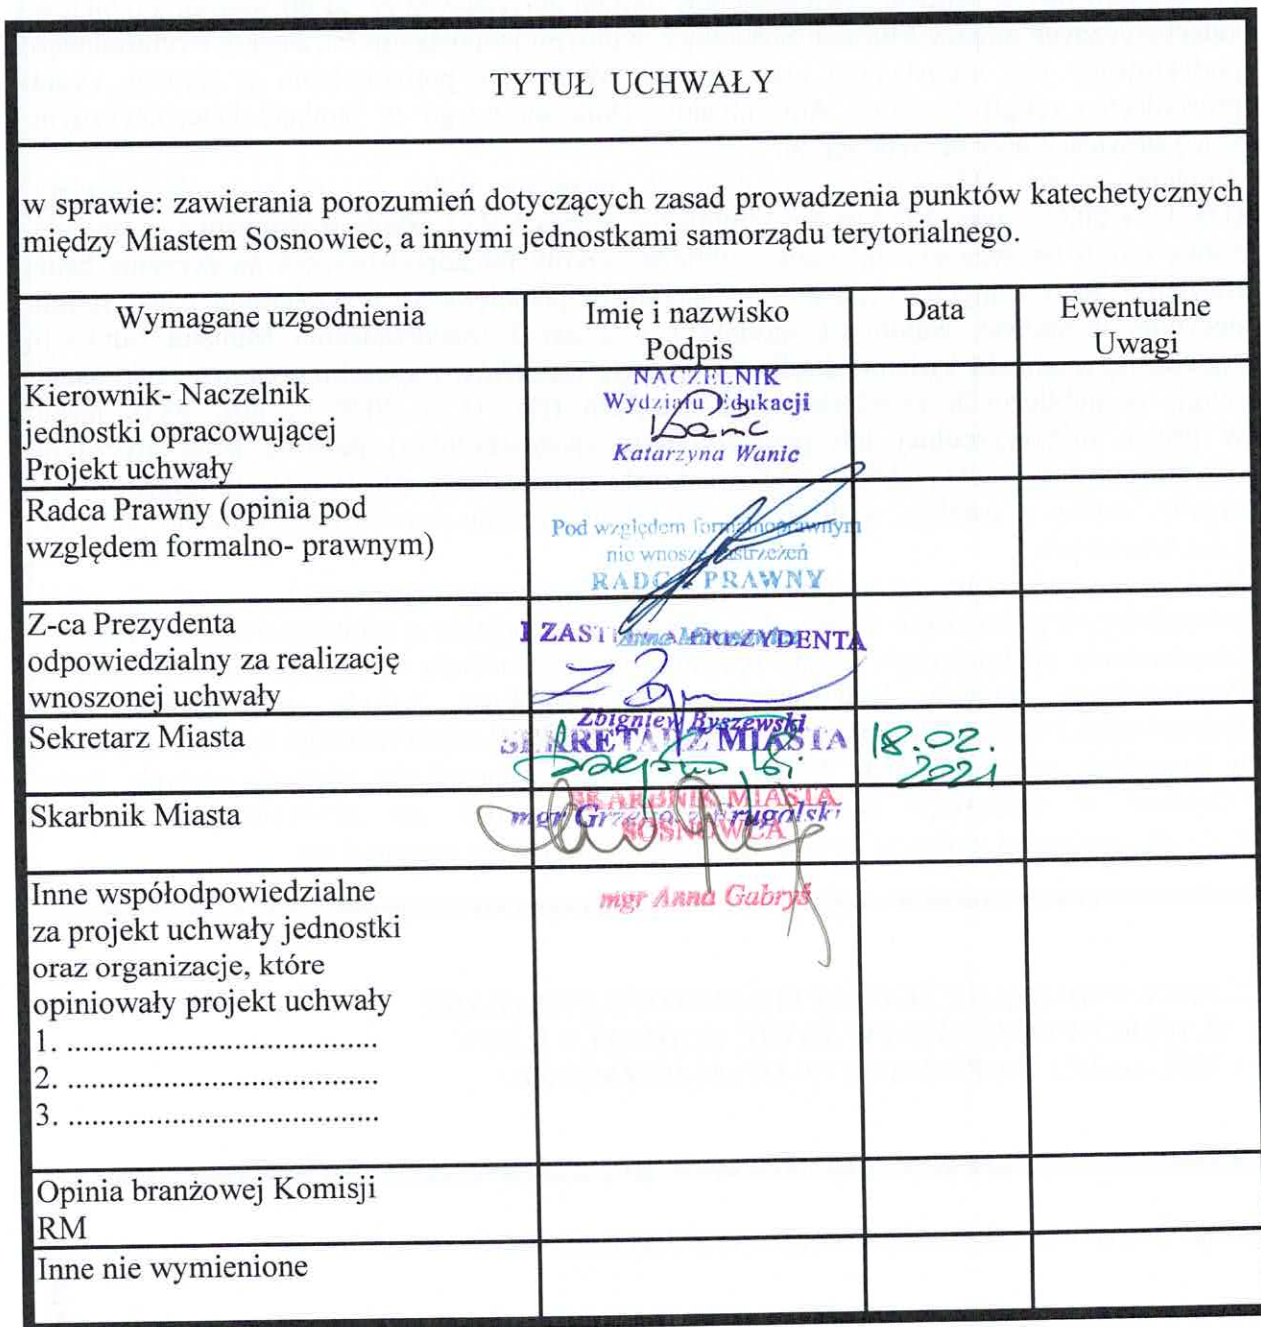 TYTUŁ UCHWAŁY
w sprawie: zawierania porozumień dotyczących zasad prowadzenia punktów katechetycznych
między Miastem Sosnowiec, a innymi jednostkami samorządu terytorialnego.
Wymagane uzgodnienia
Imię i nazwisko
Podpis
Data
Ewentualne
Uwagi
Kierownik- Naczelnik
jednostki opracowującej
Projekt uchwały
NACZELNIK
Wydziału Edukacji
Katarzyna Wanic
Radca Prawny (opinia pod
względem formalno- prawnym)
Pod względem formalnoprawnym
nie wnoszę zastrzeżeń
RADCA PRAWNY
Anna
Z-ca Prezydenta
odpowiedzialny za realizację
wnoszonej uchwały
I ZASTĘPCA PREZYDENTA
Zbigniew Byszewski
Sekretarz Miasta
SEKRETARZ MIASTA
18.02.
2021
Skarbnik Miasta
mgr
SKARBNIK MIASTA
SOSNOWCA
mgr Anna Gabryś
Inne współodpowiedzialne
za projekt uchwały jednostki
oraz organizacje, które
opiniowały projekt uchwały
1. ....................................
2. ....................................
3. ....................................
Opinia branżowej Komisji
RM
Inne nie wymienione